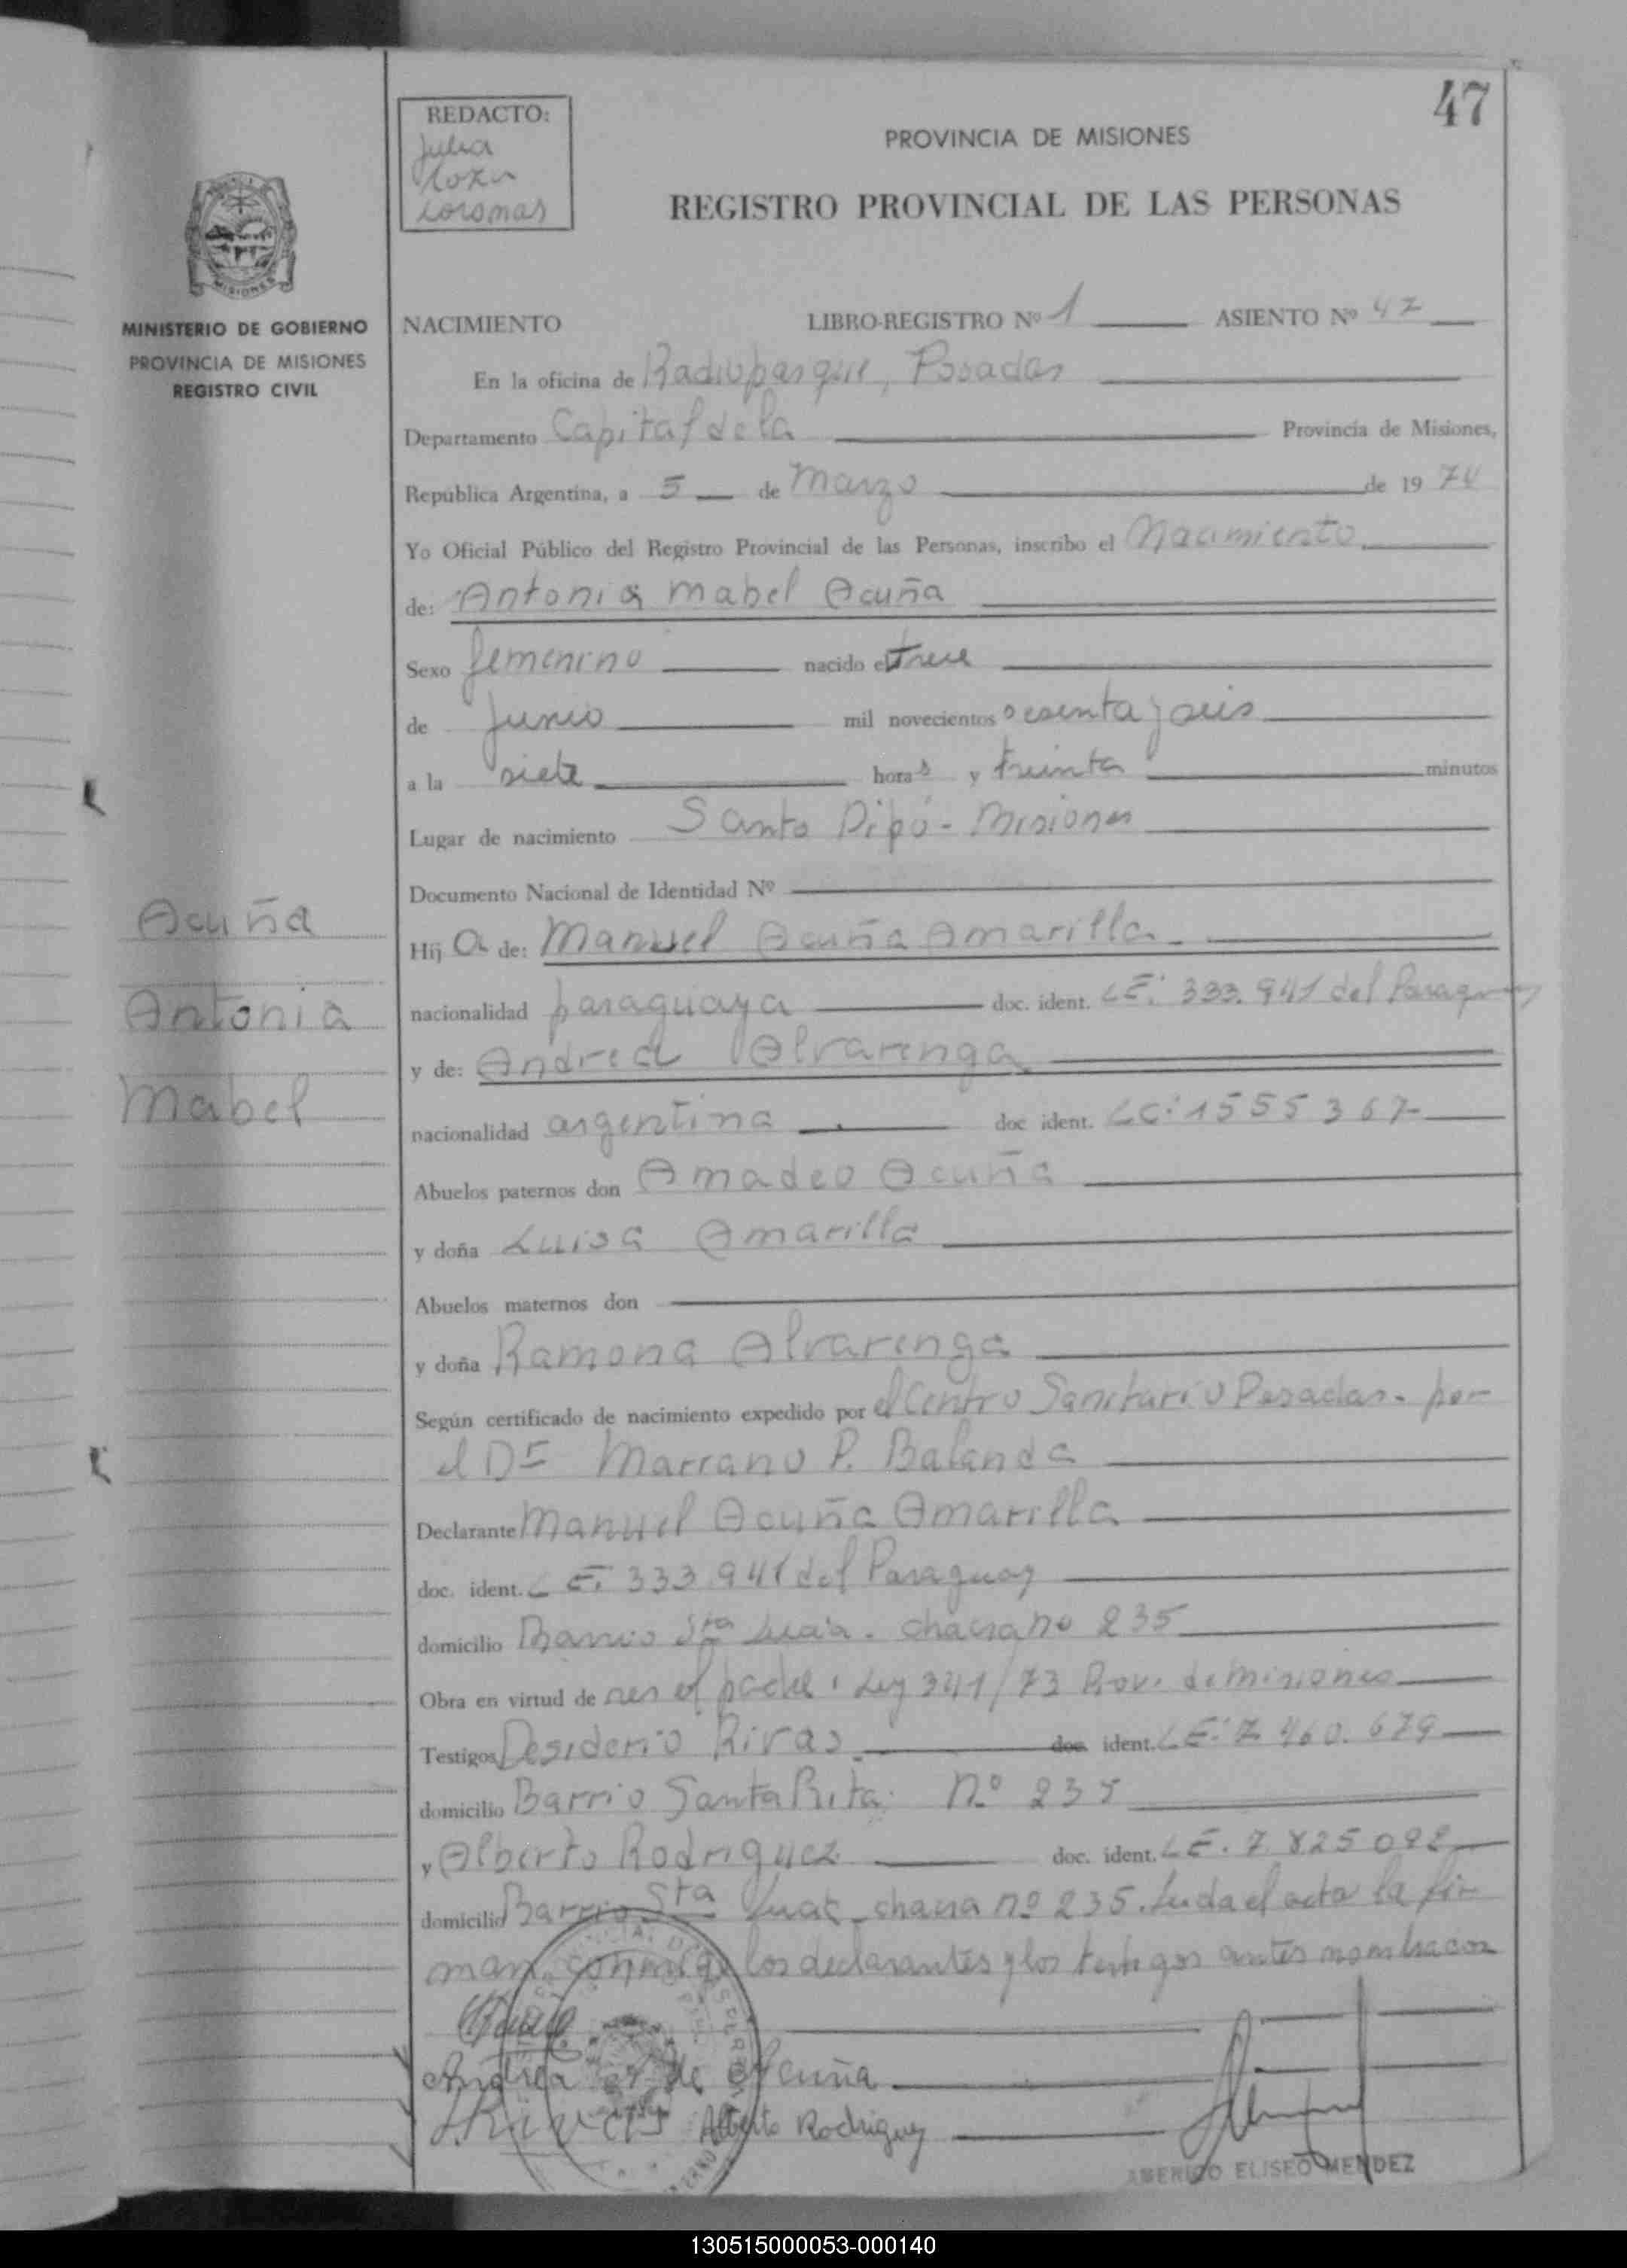 47
REDACTO:
Julia
PROVINCIA DE MISIONES
REGISTRO PROVINCIAL DE LAS PERSONAS
MISIONES
MINISTERIO DE GOBIERNO
PROVINCIA DE MISIONES
REGISTRO CIVIL
NACIMIENTO LIBRO-REGISTRO Nº 1 ASIENTO Nº 47
En la oficina de Radioparque, Posadas
Departamento Capital de la Provincia de Misiones,
República Argentina, a 5 de Marzo de 1974
Yo Oficial Público del Registro Provincial de las Personas, inscribo el Nacimiento
de: Antonia Mabel Acuña
Sexo femenino nacido el trece
de Junio mil novecientos sesenta y seis
a la siete horas y treinta minutos
Lugar de nacimiento Santo Pipó - Misiones
Documento Nacional de Identidad Nº
Acuña
Antonia
Mabel
Hij a de: Manuel Acuña Amarilla
nacionalidad paraguaya doc. ident. LE: 333.941 del Paraguay
y de: Andrea Alvarenga
nacionalidad argentina doc ident. LC: 1555367-
Abuelos paternos don Amadeo Acuña
y doña Luisa Amarilla
Abuelos maternos don
y doña Ramona Alvarenga
Según certificado de nacimiento expedido por el Centro Sanitario Posadas - por
el Dr P. Balanda
Declarante Manuel Acuña Amarilla
doc. ident. LE: 333.941 del Paraguay
domicilio Barrio Sta Lucía - chacra no 235
Obra en virtud de ser el padre, Ley 341/73 Prov. de Misiones
Testigos Desiderio Rivas doc. ident. LE: 7 460.679
domicilio Barrio Santa Rita Nº 235
y Alberto Rodriguez doc. ident. LE. 7.825092
domicilio Barrio Sta chacra nº 235. Leida el acta la fir-
man conmigo los declarantes y los testigos antes nombrados
Andrea A de Acuña
Rivas Alberto Rodriguez
AMERICO ELISEO MENDEZ
130515000053-000140